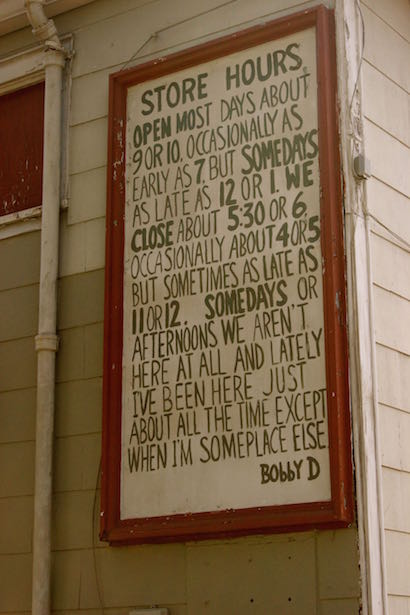 STORE HOURS
OPEN MOST DAYS ABOUT
9 OR 10. OCCASIONALLY AS
EARLY AS 7. BUT SOMEDAYS
AS LATE AS 12 OR 1. WE
CLOSE ABOUT 5:30 OR 6.
OCCASIONALLY ABOUT 4 OR 5
BUT SOMETIMES AS LATE AS
11 OR 12. SOMEDAYS OR
AFTERNOONS WE AREN'T
HERE AT ALL AND LATELY
I'VE BEEN HERE JUST
ABOUT ALL THE TIME EXCEPT
WHEN I'M SOMEPLACE ELSE
BOBBY D